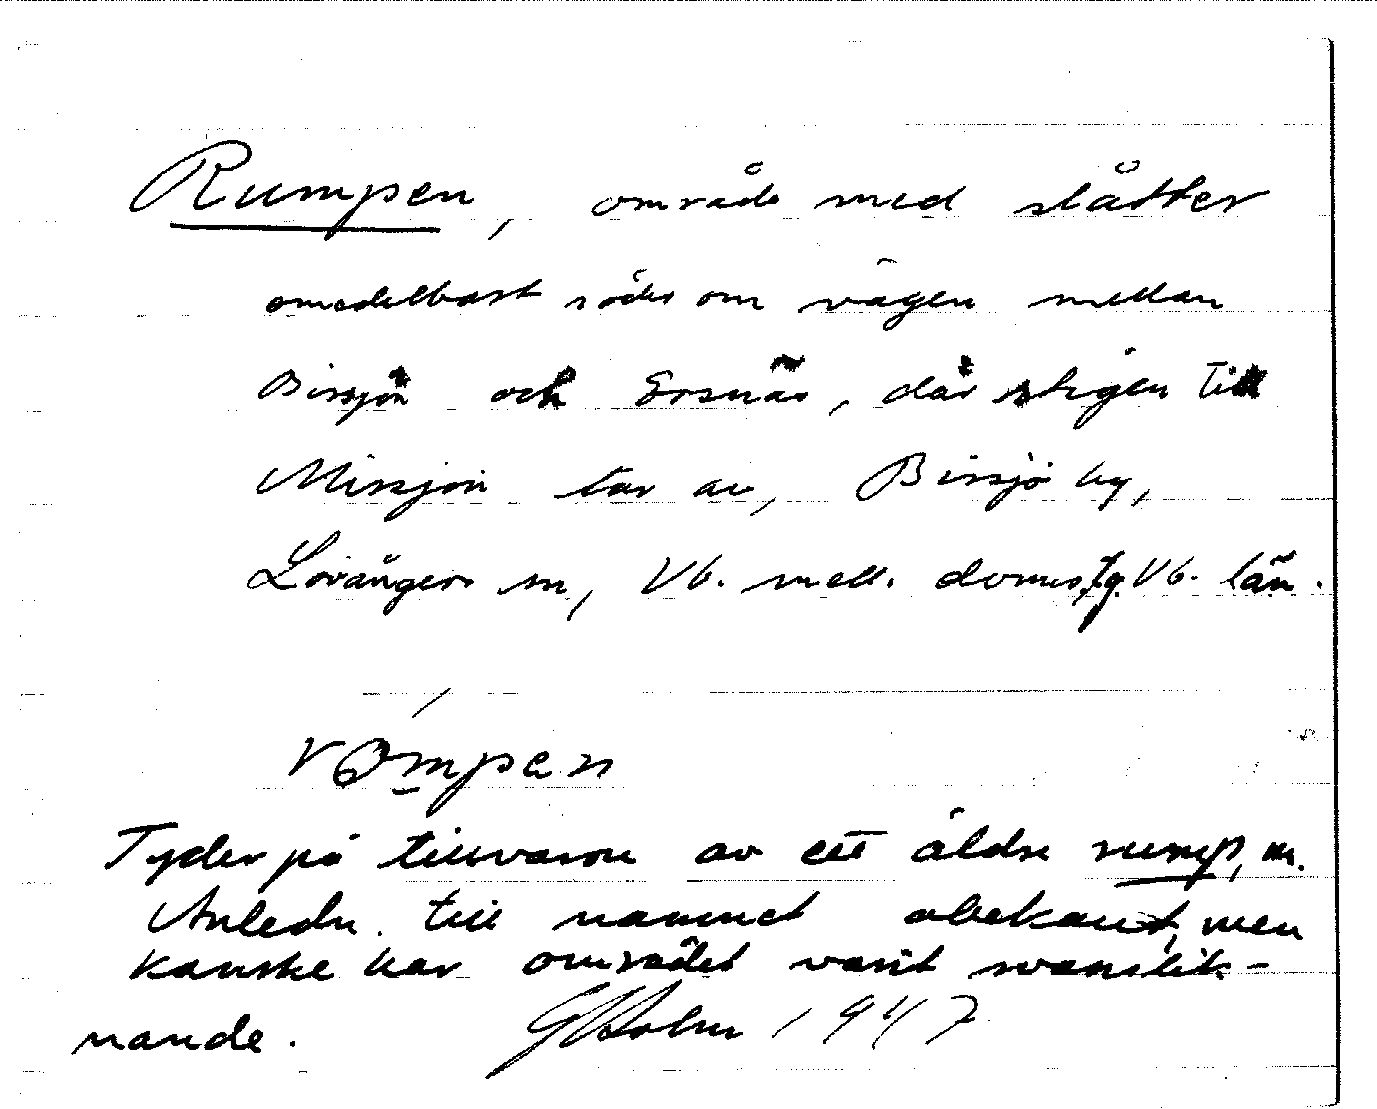 Rumpen, område med slåtter
omedelbart söder om vägen mellan
Bissjön och Ersnäs, där stigen till
Missjön tar av, Bissjö by,
Lövångers sn, Vb. mell. doms.g. Vb. län.
Tyder på tillvaron av ett äldre rump, m.
Anledn. till namnet obekant, men
kanske har området varit svanslik-
nande. GHolm 1947